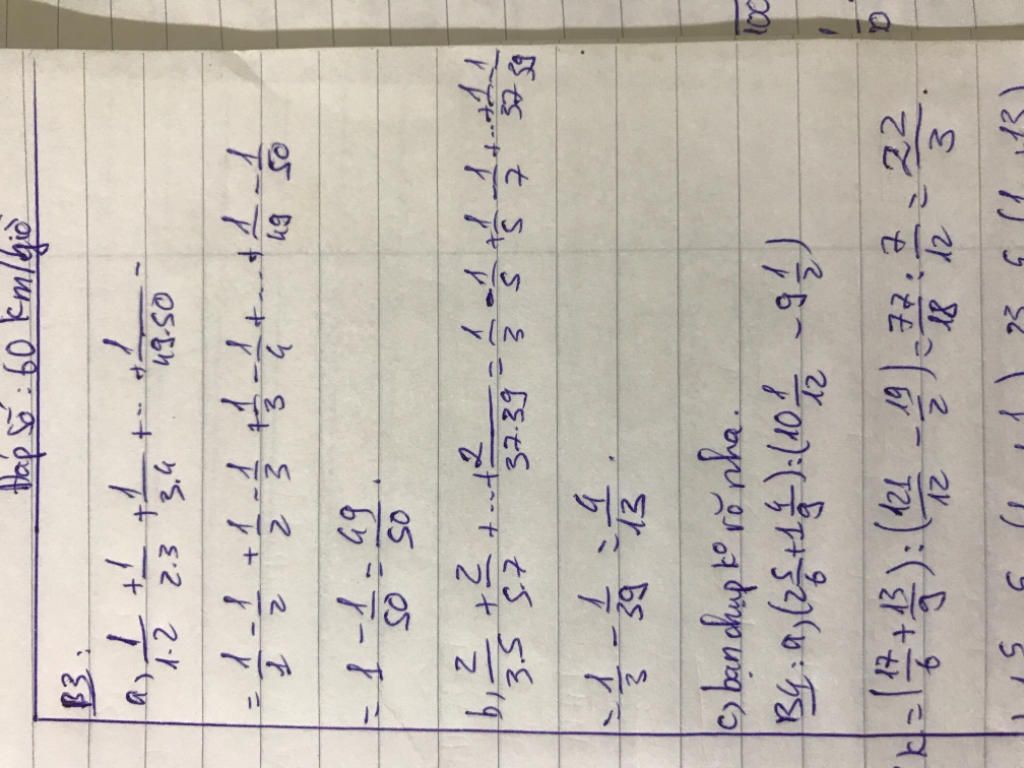 Đáp số: 60 km/giờ
B3:
a, 1/1.2 + 1/2.3 + 1/3.4 + ... + 1/49.50
= 1/1 - 1/2 + 1/2 - 1/3 + 1/3 - 1/4 + ... + 1/49 - 1/50
= 1 - 1/50 = 49/50.
b, 2/3.5 + 2/5.7 + ... + 2/37.39 = 1/3 - 1/5 + 1/5 - 1/7 + ... + 1/37 - 1/39
= 1/3 - 1/39 = 4/13.
c) bạn chụp ko rõ nha.
B4: a, (2 5/6 + 1 4/9) : (10 1/12 - 9 1/2)
= (17/6 + 13/9) : (121/12 - 19/2) = 77/18 : 7/12 = 22/3.